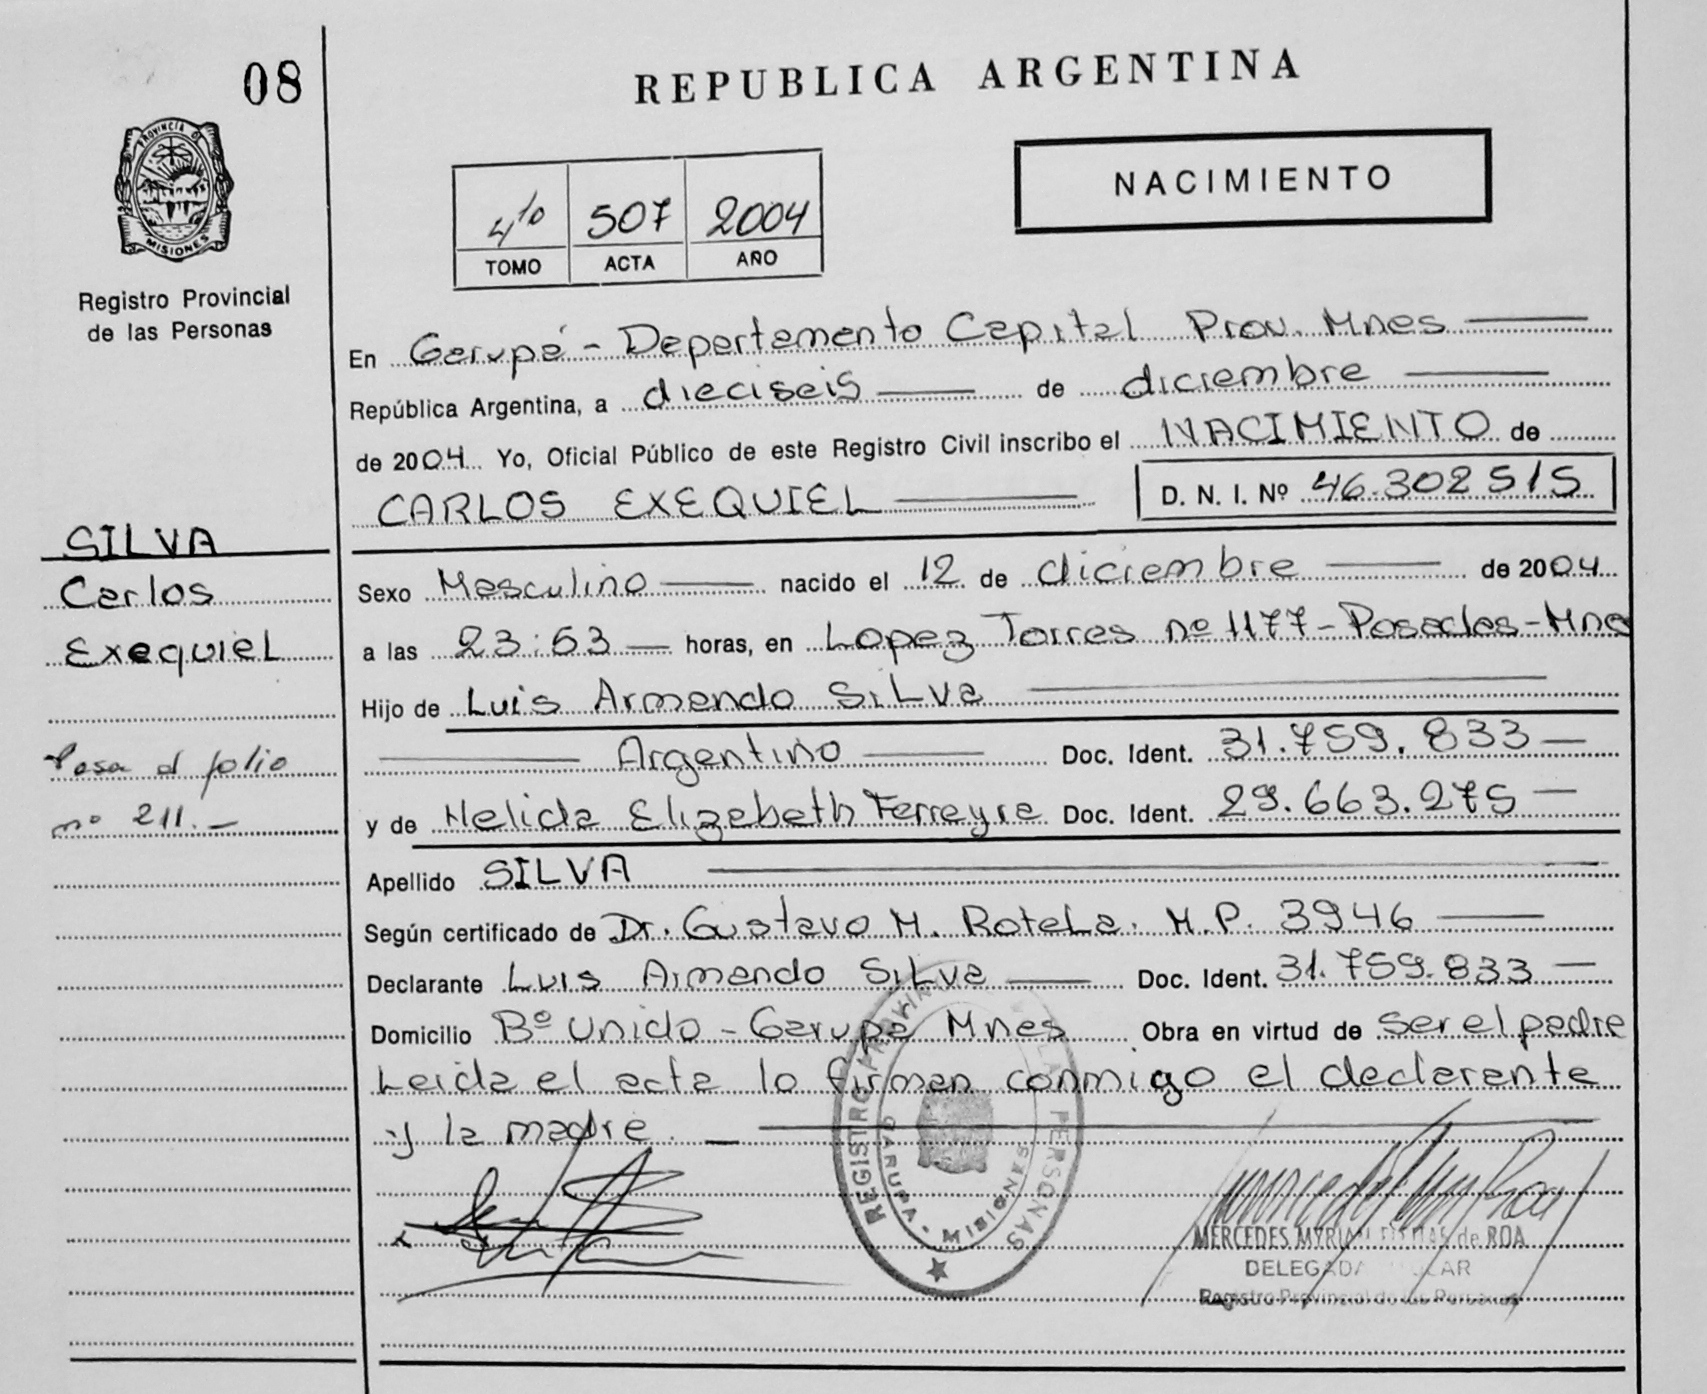 08
REPUBLICA ARGENTINA
PROVINCIA DE
MISIONES
Registro Provincial
de las Personas
NACIMIENTO
4to 507 2004
TOMO ACTA AÑO
En Garupá - Departamento Capital Prov. Mnes
República Argentina, a dieciseis de diciembre
de 2004 Yo, Oficial Público de este Registro Civil inscribo el NACIMIENTO de
CARLOS EXEQUIEL D. N. I. Nº 46.302515
SILVA
Carlos
Exequiel
Sexo Masculino nacido el 12 de diciembre de 2004
a las 23:53 horas, en Lopez Torres nº 1177 - Posadas - Mnes
Hijo de Luis Armando Silva
Argentino Doc. Ident. 31.759.833
Pasa al folio
nº 211.-
y de Nelida Elizabeth Ferreyra Doc. Ident. 29.663.275
Apellido SILVA
Según certificado de Dr. Gustavo M. Rotela. M.P. 3946
Declarante Luis Armando Silva Doc. Ident. 31.759.833
Domicilio Bº Unido - Garupa Mnes Obra en virtud de ser el padre
Leida el acta lo firman conmigo el declarante
y la madre.
REGISTRO PROVINCIAL DE LAS PERSONAS
GARUPA - MISIONES
MERCEDES MYRIAM de ROA
DELEGADA
Registro Provincial de las Personas